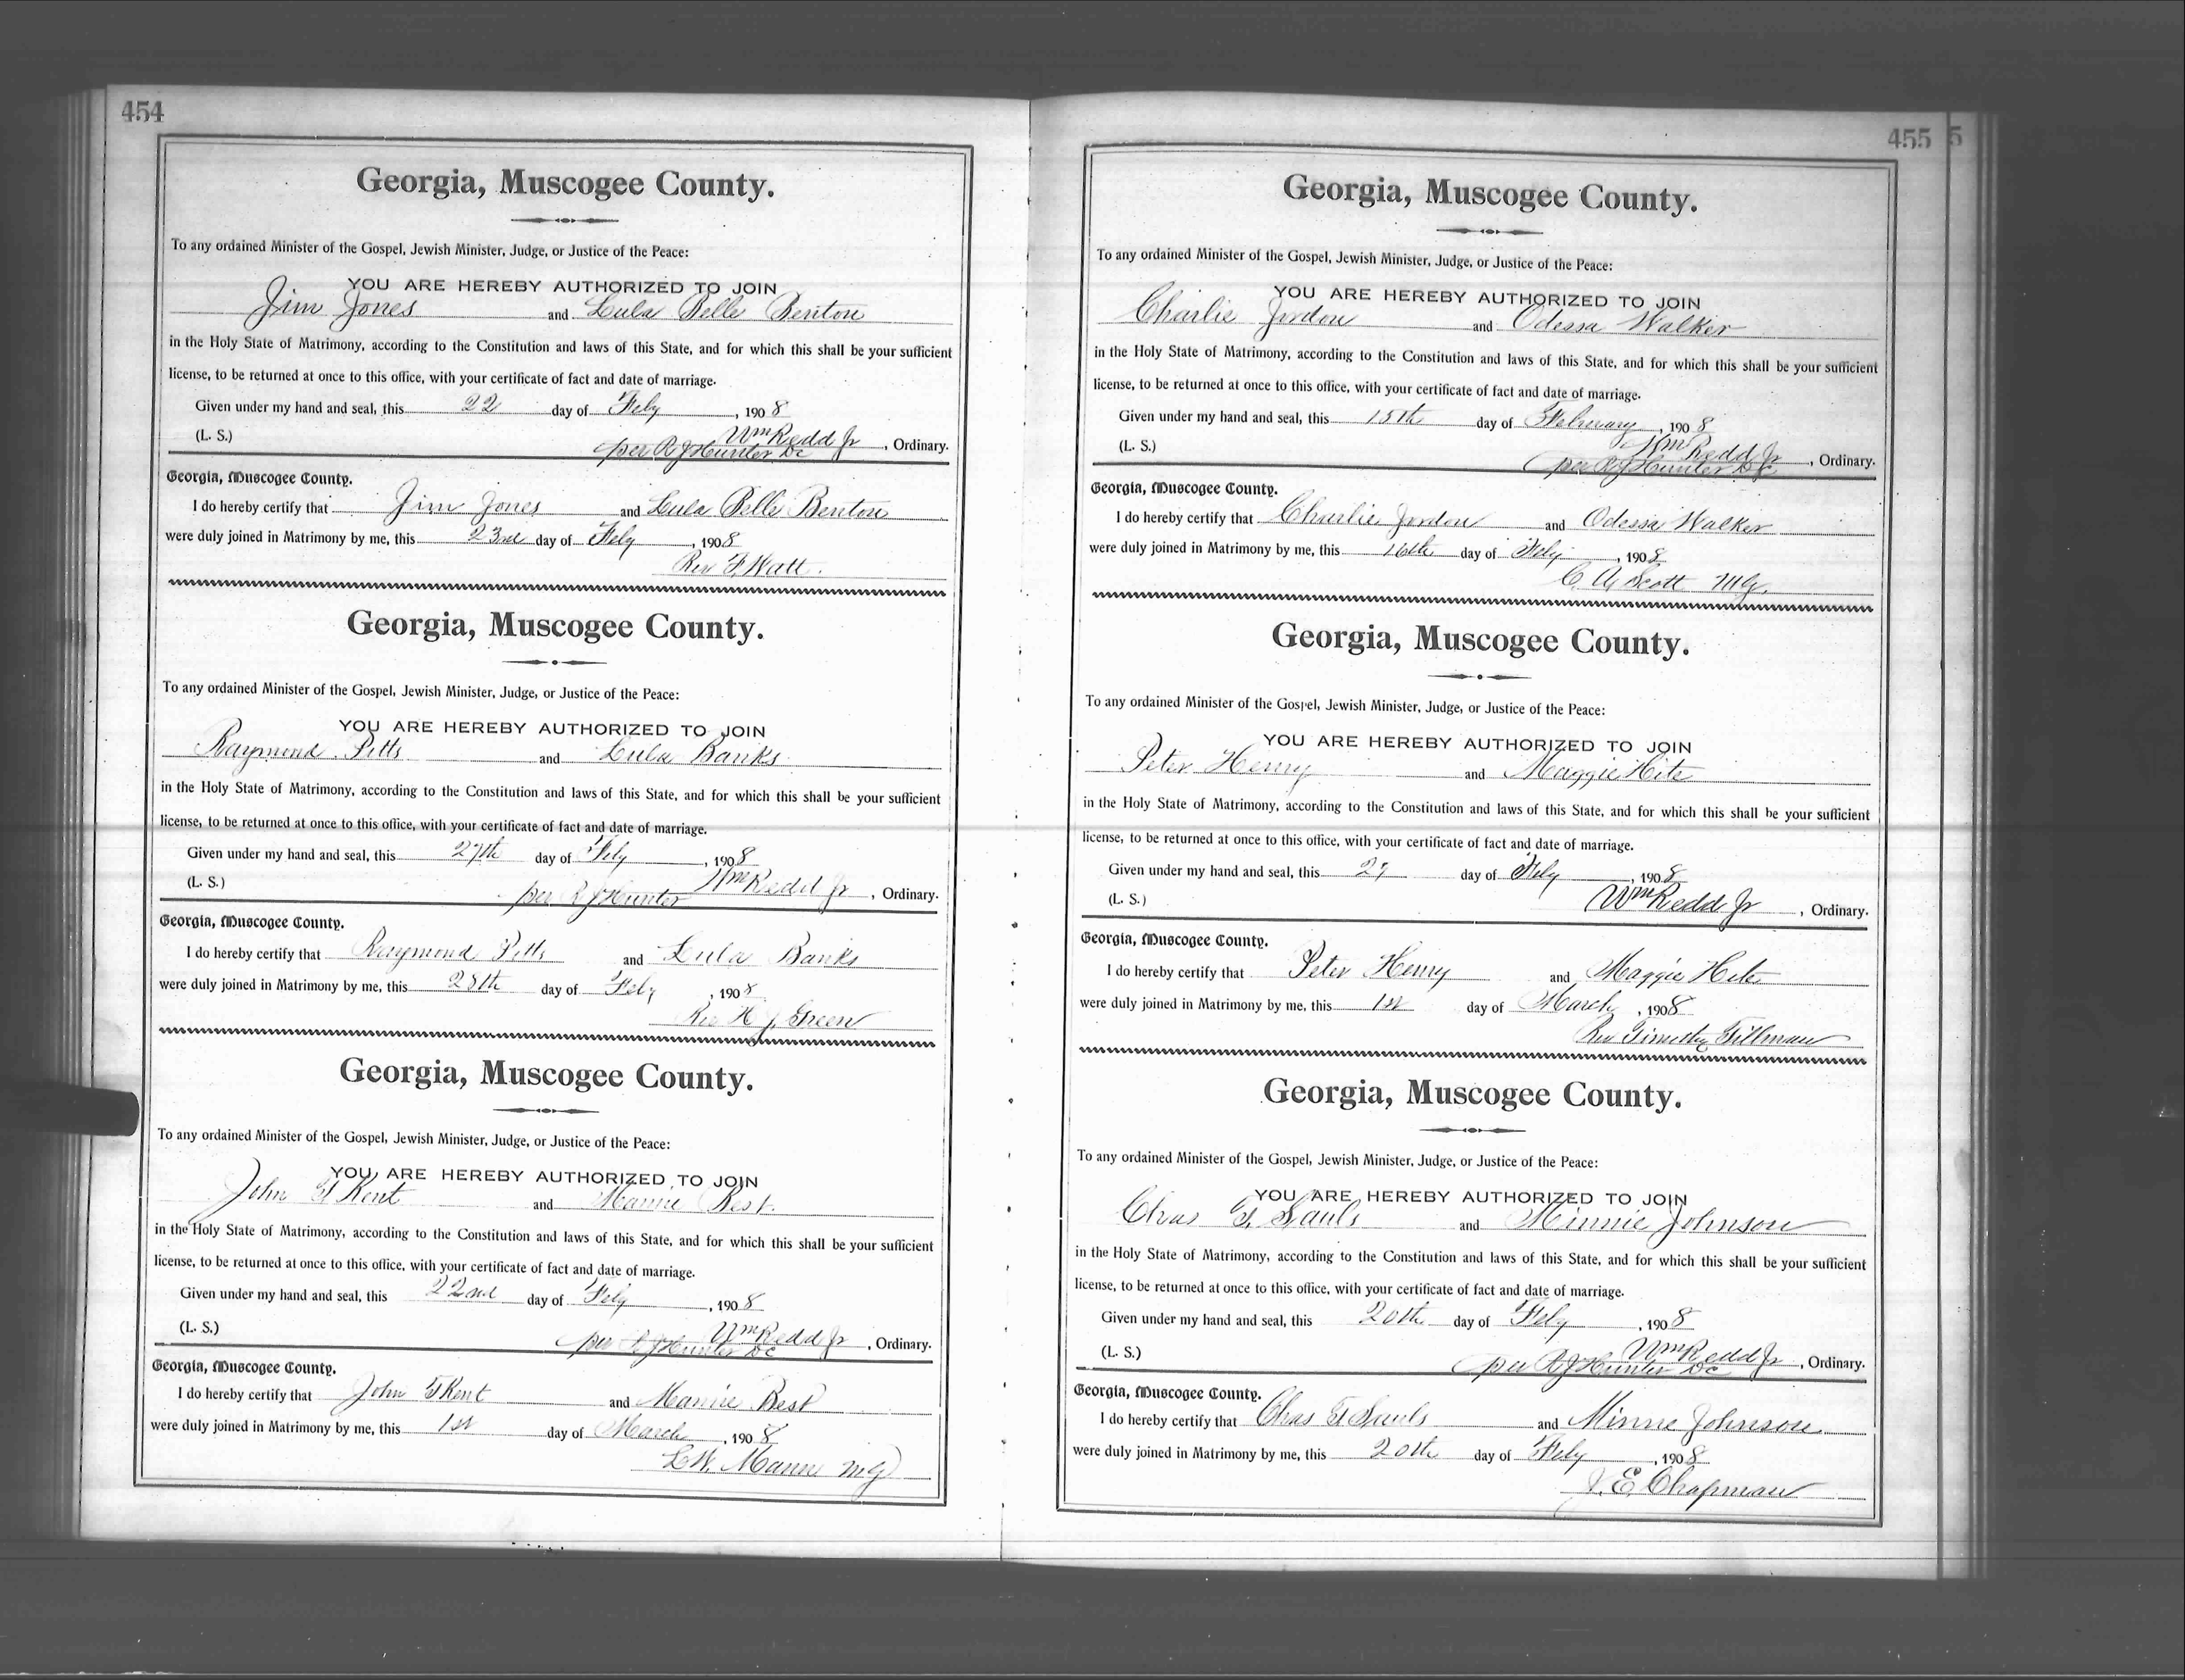 454
Georgia, Muscogee County.
To any ordained Minister of the Gospel, Jewish Minister, Judge, or Justice of the Peace:
YOU ARE HEREBY AUTHORIZED TO JOIN
Jim Jones and Lula Belle Benton
in the Holy State of Matrimony, according to the Constitution and laws of this State, and for which this shall be your sufficient
license, to be returned at once to this office, with your certificate of fact and date of marriage.
Given under my hand and seal, this 22 day of Feby, 1908
(L. S.) Wm Redd Jr, Ordinary.
per R J Hunter DC
Georgia, Muscogee County.
I do hereby certify that Jim Jones and Lula Belle Benton
were duly joined in Matrimony by me, this 23rd day of Feby, 1908
Rev F. Watt.
Georgia, Muscogee County.
To any ordained Minister of the Gospel, Jewish Minister, Judge, or Justice of the Peace:
YOU ARE HEREBY AUTHORIZED TO JOIN
Raymond Pitts and Lula Banks
in the Holy State of Matrimony, according to the Constitution and laws of this State, and for which this shall be your sufficient
license, to be returned at once to this office, with your certificate of fact and date of marriage.
Given under my hand and seal, this 27th day of Feby, 1908
(L. S.) Wm Redd Jr, Ordinary.
per R J Hunter
Georgia, Muscogee County.
I do hereby certify that Raymond Pitts and Lula Banks
were duly joined in Matrimony by me, this 28th day of Feby, 1908
Rev H J. Green
Georgia, Muscogee County.
To any ordained Minister of the Gospel, Jewish Minister, Judge, or Justice of the Peace:
YOU ARE HEREBY AUTHORIZED TO JOIN
John T Kent and Mannie Best
in the Holy State of Matrimony, according to the Constitution and laws of this State, and for which this shall be your sufficient
license, to be returned at once to this office, with your certificate of fact and date of marriage.
Given under my hand and seal, this 22nd day of Feby, 1908
(L. S.) Wm Redd Jr, Ordinary.
per R J Hunter DC
Georgia, Muscogee County.
I do hereby certify that John T Kent and Mannie Best
were duly joined in Matrimony by me, this 1st day of March, 1908
L.W. Mann MG
455 5
Georgia, Muscogee County.
To any ordained Minister of the Gospel, Jewish Minister, Judge, or Justice of the Peace:
YOU ARE HEREBY AUTHORIZED TO JOIN
Charlie Jordon and Odessa Walker
in the Holy State of Matrimony, according to the Constitution and laws of this State, and for which this shall be your sufficient
license, to be returned at once to this office, with your certificate of fact and date of marriage.
Given under my hand and seal, this 15th day of February, 1908
(L. S.) Wm Redd Jr, Ordinary.
per R J Hunter DC
Georgia, Muscogee County.
I do hereby certify that Charlie Jordon and Odessa Walker
were duly joined in Matrimony by me, this 16th day of Feby, 1908
C. A. Scott MG.
Georgia, Muscogee County.
To any ordained Minister of the Gospel, Jewish Minister, Judge, or Justice of the Peace:
YOU ARE HEREBY AUTHORIZED TO JOIN
Peter Henry and Maggie Hite
in the Holy State of Matrimony, according to the Constitution and laws of this State, and for which this shall be your sufficient
license, to be returned at once to this office, with your certificate of fact and date of marriage.
Given under my hand and seal, this 27 day of Feby, 1908
(L. S.) Wm Redd Jr, Ordinary.
Georgia, Muscogee County.
I do hereby certify that Peter Henry and Maggie Hite
were duly joined in Matrimony by me, this 1st day of March, 1908
Rev Timothy Tillman
Georgia, Muscogee County.
To any ordained Minister of the Gospel, Jewish Minister, Judge, or Justice of the Peace:
YOU ARE HEREBY AUTHORIZED TO JOIN
Chas T. Sauls and Minnie Johnson
in the Holy State of Matrimony, according to the Constitution and laws of this State, and for which this shall be your sufficient
license, to be returned at once to this office, with your certificate of fact and date of marriage.
Given under my hand and seal, this 20th day of Feby, 1908
(L. S.) Wm Redd Jr, Ordinary.
per R J Hunter DC
Georgia, Muscogee County.
I do hereby certify that Chas T Sauls and Minne Johnson
were duly joined in Matrimony by me, this 20th day of Feby, 1908
J. E. Chapman